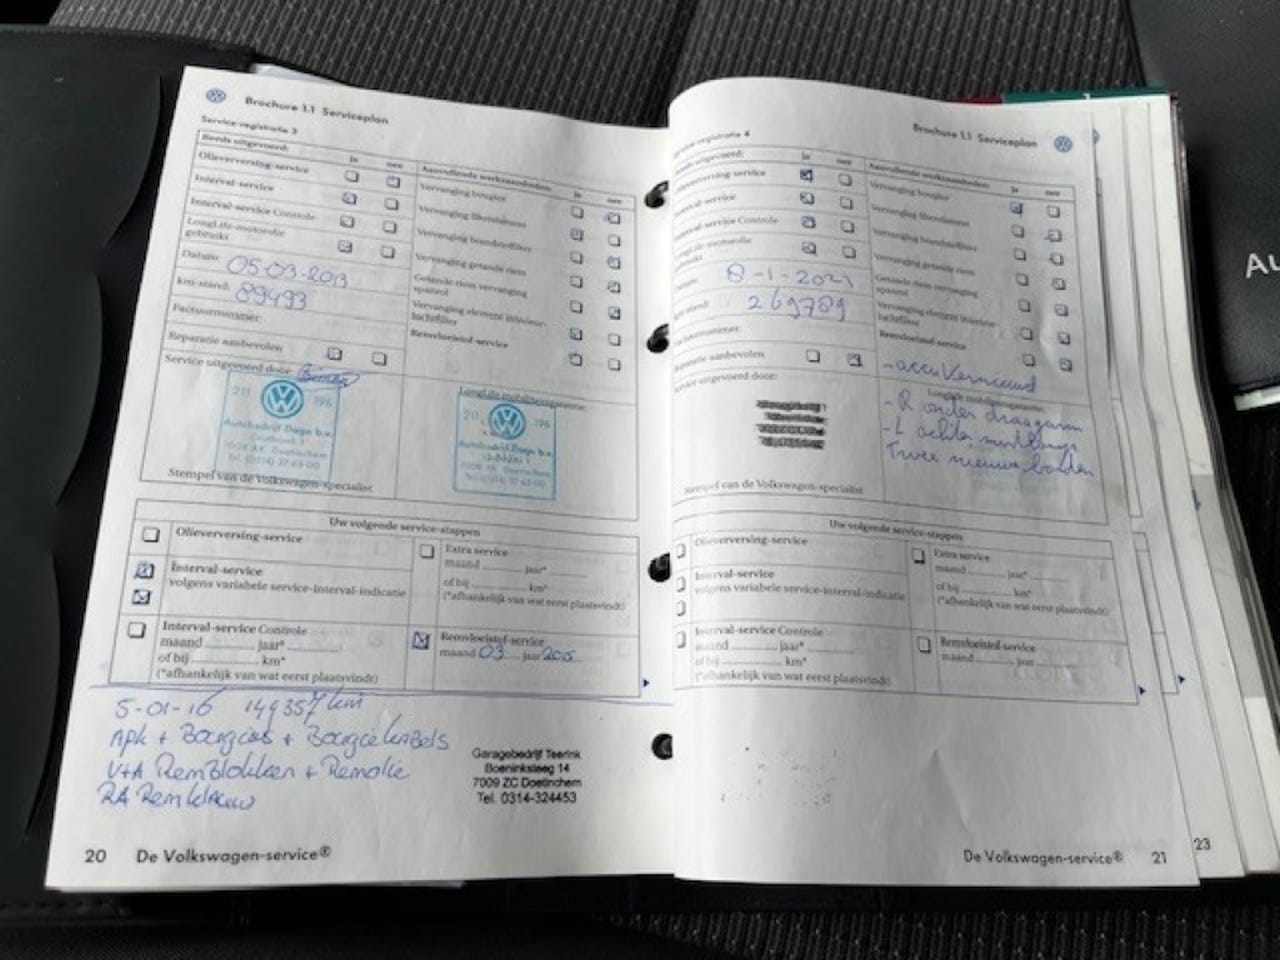 Brochure 1.1 Serviceplan
Service-registratie 3
Reeds uitgevoerd:
ja
nee
Aanvullende werkzaamheden:
ja
nee
Olieverversing-service
Interval-service
Interval-service Controle
LongLife-motorolie
gebruikt
Datum: 05-03-2013
km-stand: 89493
Factuurnummer:
Reparatie aanbevolen
Service uitgevoerd door:
Vervanging bougies
Vervanging filterelement
Vervanging brandstoffilter
Vervanging getande riem
Getande riem vervanging
spanrol
Vervanging element interieur-
luchtfilter
Remvloeistof-service
211 196
Autobedrijf Dago b.v.
7009 AK Doetinchem
Tel. (0314) 37 65 00
LongLife mobiliteitsgarantie:
211 196
Autobedrijf Dago b.v.
Stempel van de Volkswagen-specialist
Uw volgende service-stappen
Olieverversing-service
Interval-service
volgens variabele service-interval-indicatie
Interval-service Controle
maand jaar*
of bij km*
(*afhankelijk van wat eerst plaatsvindt)
Extra service
maand jaar*
of bij km*
(*afhankelijk van wat eerst plaatsvindt)
Remvloeistof-service
maand 03 jaar 2015
5-01-16 149357 km
Apk + Bougies + Bougiekabels
V+A Remblokken + Remolie
RA Remklauw
Garagebedrijf Teerink
Boeninksteeg 14
7009 ZC Doetinchem
Tel. 0314-324453
20 De Volkswagen-service®
Brochure 1.1 Serviceplan
Service-registratie 4
ja
nee
Aanvullende werkzaamheden:
ja
nee
Olieverversing-service
Interval-service
Interval-service Controle
LongLife-motorolie
gebruikt
Datum: 8-1-2021
km-stand: 269789
Factuurnummer:
Reparatie aanbevolen
Service uitgevoerd door:
Vervanging bougies
Vervanging filterelement
Vervanging brandstoffilter
Vervanging getande riem
Getande riem vervanging
spanrol
Vervanging element interieur-
luchtfilter
Remvloeistof-service
- accu Vernieuwd
LongLife mobiliteitsgarantie:
- R onder draagarm
- L achter
Twee nieuwe banden
Stempel van de Volkswagen-specialist
Uw volgende service-stappen
Olieverversing-service
Interval-service
volgens variabele service-interval-indicatie
Interval-service Controle
maand jaar*
of bij km*
(*afhankelijk van wat eerst plaatsvindt)
Extra service
maand jaar*
of bij km*
(*afhankelijk van wat eerst plaatsvindt)
Remvloeistof-service
maand jaar
De Volkswagen-service® 21
23
Au